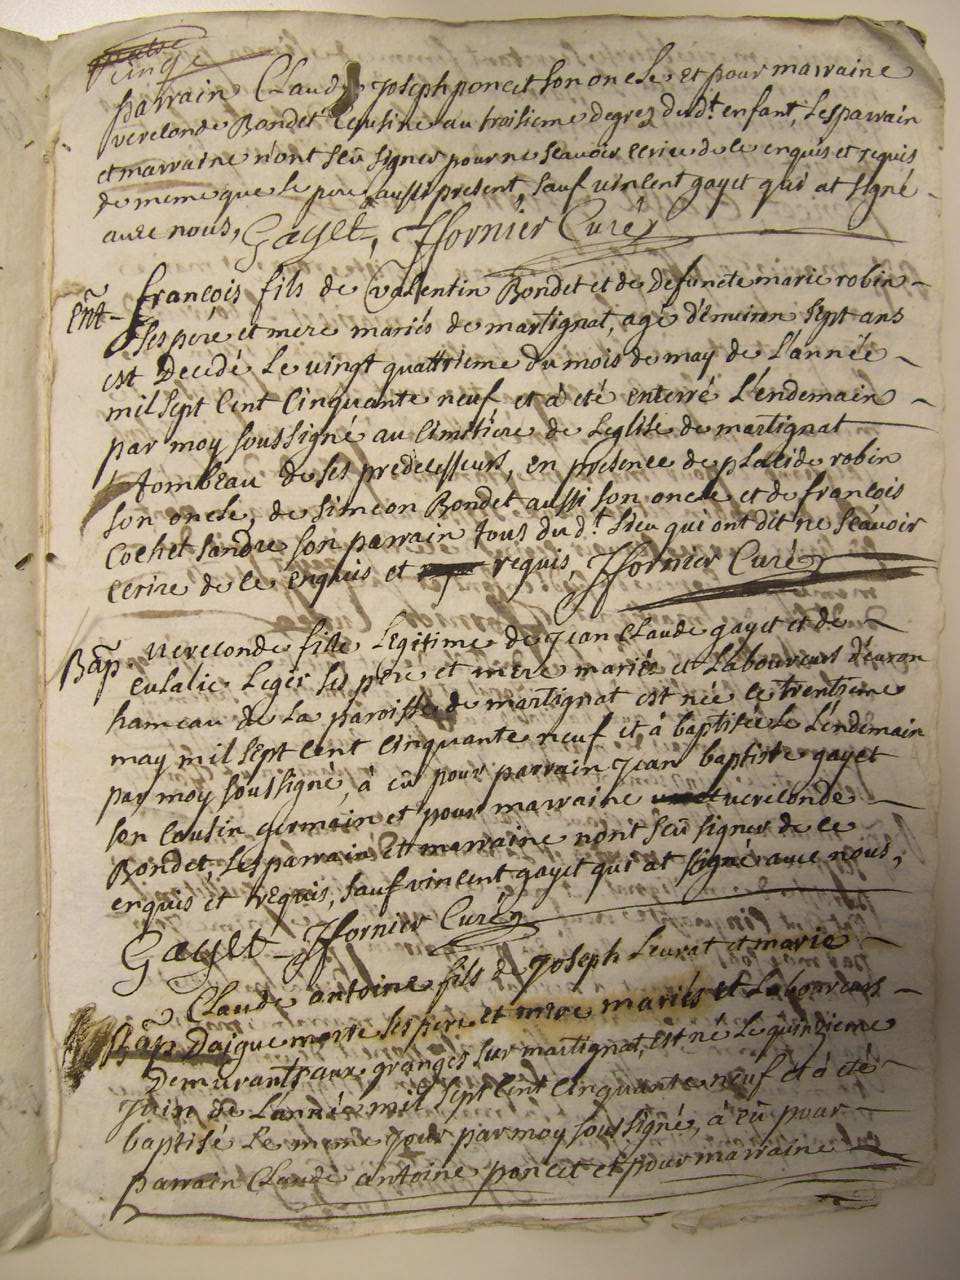 parrain Claude Joseph poncet son oncle et pour marraine
vereconde Bondet Cousine au troisieme degrez dud.t enfant, Les parrain
et marraine n'ont seû signer pour ne scavoir ecrire de ce enquis et requis
de meme que Le pere aussi present, sauf vincent gayet qui at signé
avec nous, Gayet, Ffornier Curéz
Ent françois fils de valentin Bondet et de defuncte marie robin
ses pere et mere mariés de martignat, agé d'environ sept ans
est Decedé Le vingt quattrieme du mois de may de L'année
mil sept Cent Cinquante neuf et à été enterré L'endemain
par moy soussigné au Cimitiere de L'eglise de martignat
tombeau de ses predecesseurs, en presence de placide robin
son oncle, de simeon Bondet aussi son oncle et de françois
Cochet sandre son parrain tous dud.t Lieu qui ont dit ne scavoir
ecrire de ce enquis et requis, Ffornier Curéz
Bap vereconde fille Legitime de Jean Claude gayet et de
eulalie Leger ses pere et mere mariés et Laboureurs d'evron
hameau de La paroisse de martignat est née Le trentieme
may mil sept Cent Cinquante neuf et à baptisée Le L'endemain
par moy soussigné, à eû pour parrain Jean baptiste gayet
son Cousin germain et pour marraine vereconde
Bondet, Les parrain Et marraine nont seû signer de ce
enquis et requis, sauf vincent gayet qui at signé avec nous,
Gayet Ffornier Curéz
Claude antoine fils de Joseph Levrat et marie
Bap Daigue morte ses pere et mere mariés et Laboureurs
demurants aux granges sur martignat, est né Le quinzieme
Juin de L'année mil sept Cent Cinquante neuf et à été
baptisé Le meme Jour par moy soussigné, à eû pour
parrain Claude antoine poncet et pour marraine